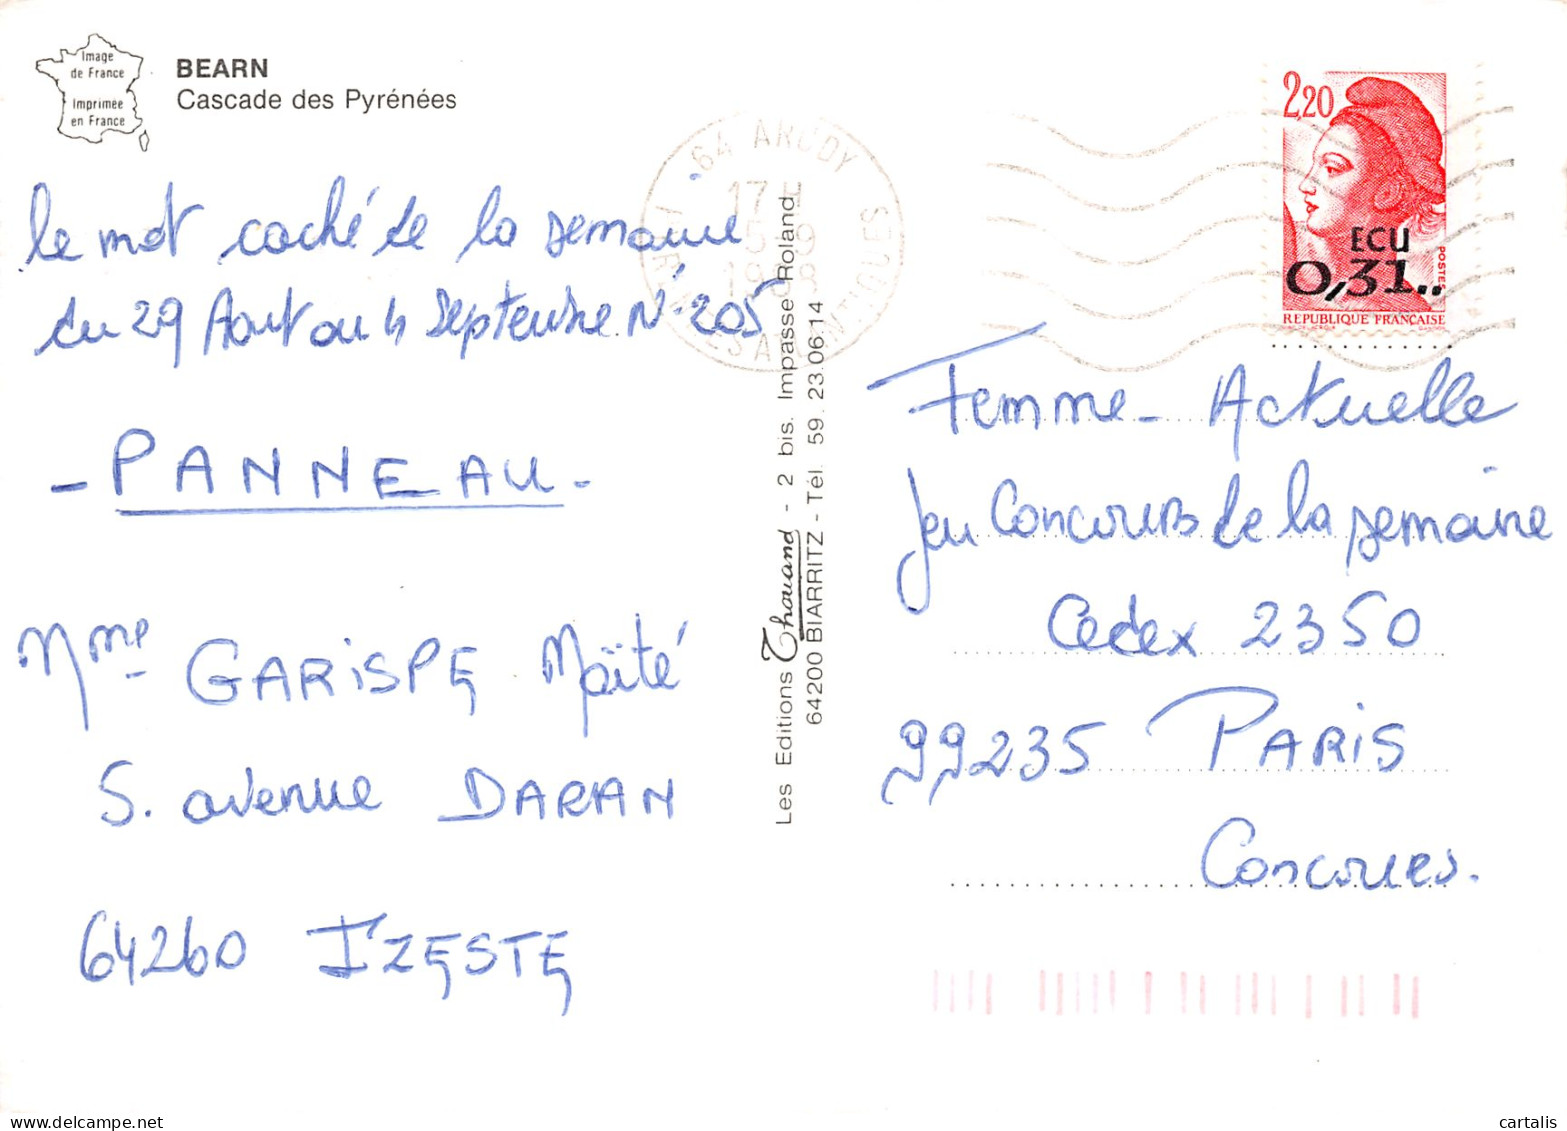 Image
de France
Imprimée
en France
BEARN
Cascade des Pyrénées
le mot caché de la semaine
du 29 Aout au 4 Septembre N° 205
- PANNEAU -
Mme GARISPE Maïté
5. avenue DARAN
64260 IZESTE
Les Editions Thouand - 2 bis. Impasse Roland
64200 BIARRITZ - Tél. 59. 23.06.14
64 ARUDY
17 H
5 - 9
1988
PYRENEES ATLANTIQUES
2,20
ECU
0,31..
POSTES
REPUBLIQUE FRANÇAISE
Femme - Actuelle
Jeu Concours de la semaine
Cedex 2350
99235 PARIS
Concours.
cartalis
www.delcampe.net